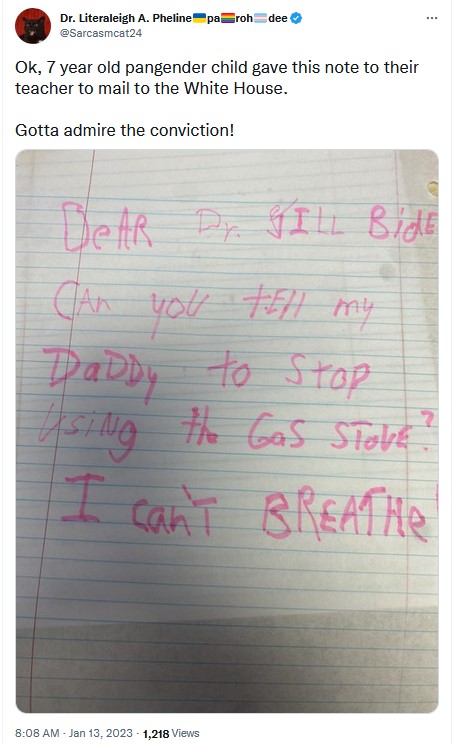 Dr. Literaleigh A. Pheline🇺🇦pa🏳️‍🌈roh🏳️‍⚧️dee
@Sarcasmcat24
Ok, 7 year old pangender child gave this note to their
teacher to mail to the White House.
Gotta admire the conviction!
DeAR Dr. JILL BidE
CAn you tEll my
DaDDy to Stop
UsiNg th GaS STovE?
I can'T BREATHe!
8:08 AM · Jan 13, 2023 · 1,218 Views